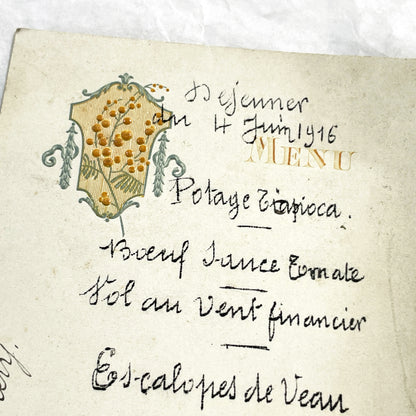 Déjeuner
du 4 Juin 1916
MENU
Potage Tapioca.
Bœuf Sauce Tomate
Vol au Vent financier
Escalopes de Veau